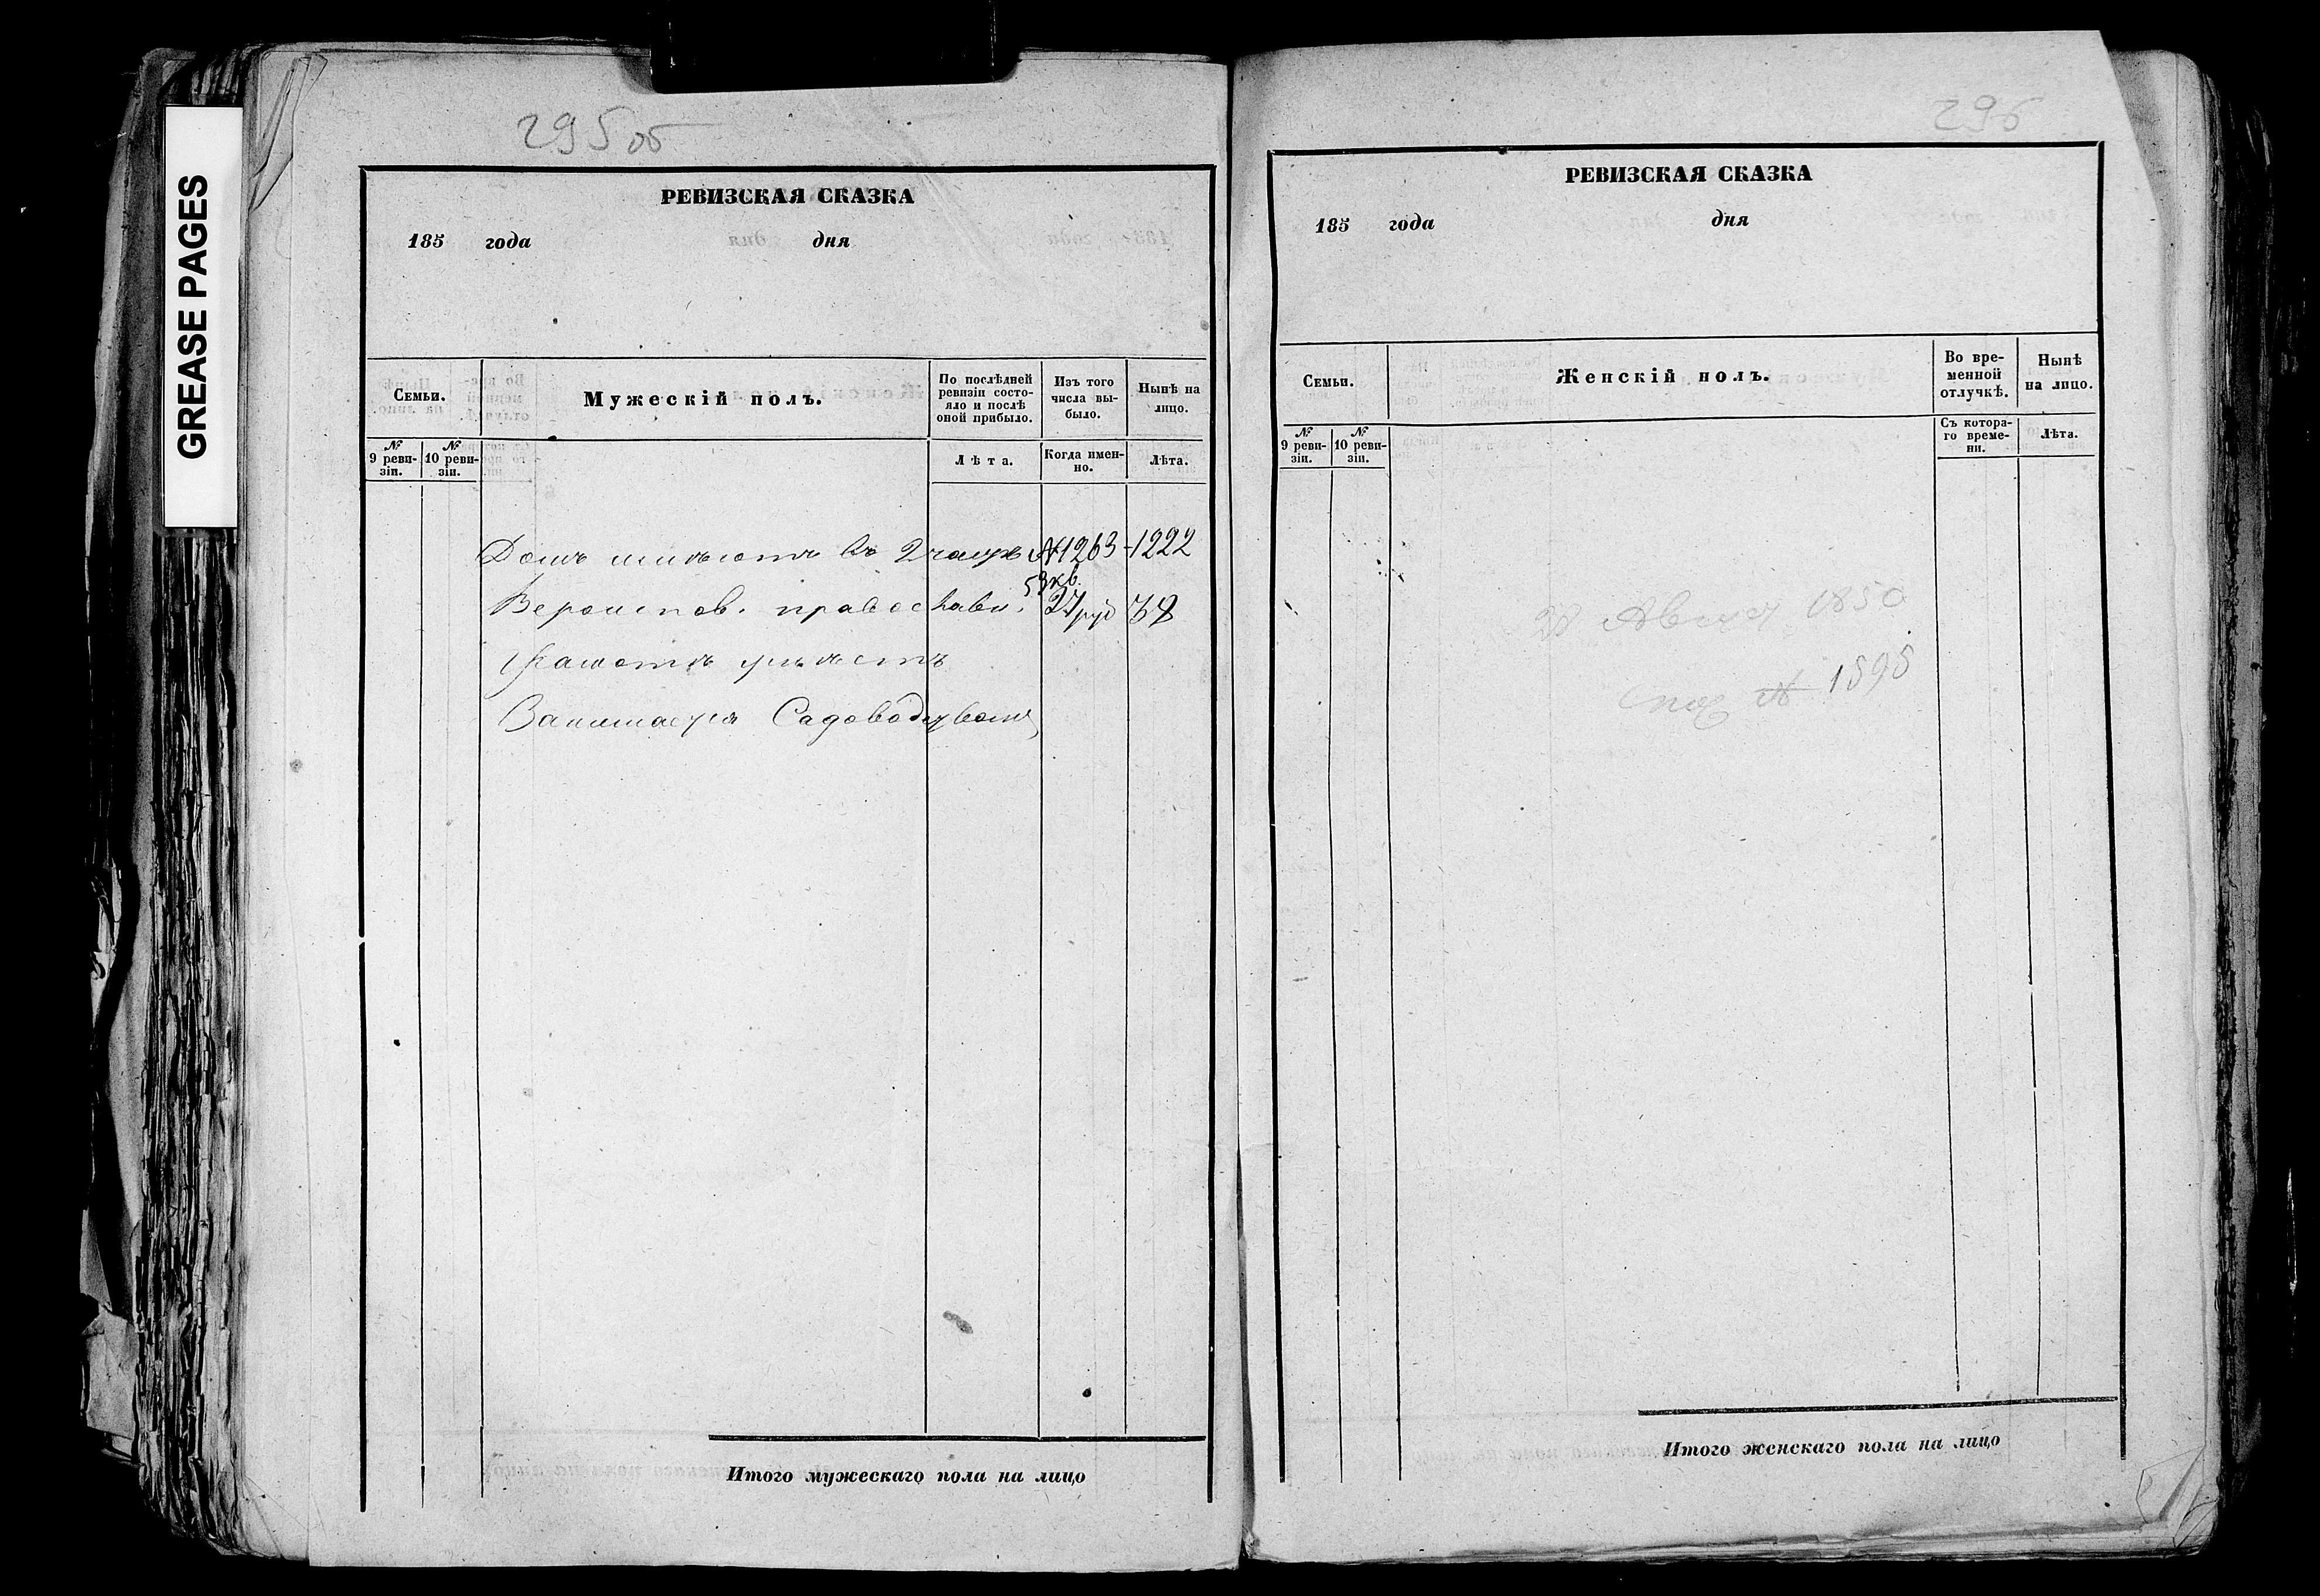 GREASE PAGES
295 об
РЕВИЗСКАЯ СКАЗКА
185 года дня
Семьи.
Мужескій полъ.
По послѣдней ревизіи состояло и послѣ оной прибыло.
Изъ того числа выбыло.
Нынѣ на лицо.
№ 9 ревизіи.
№ 10 ревизіи.
Лѣта.
Когда именно.
Лѣта.
Домъ имѣютъ въ 2 части №1263-1222
59 кв.
Вероиспов. православн. 37 руб 38
Грамотѣ умѣетъ
Занимается Садоводствомъ
Итого мужескаго пола на лицо
296
РЕВИЗСКАЯ СКАЗКА
185 года дня
Семьи.
Женскій полъ.
Во временной отлучкѣ.
Нынѣ на лицо.
№ 9 ревизіи.
№ 10 ревизіи.
Съ котораго времени.
Лѣта.
Август 1850
№ 1595
Итого женскаго пола на лицо